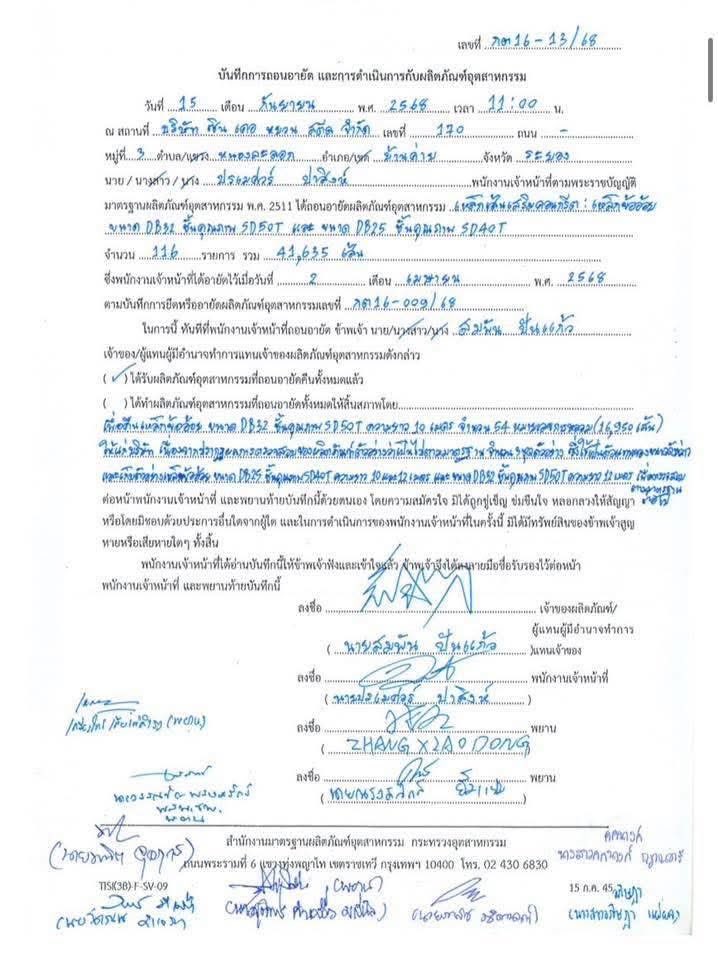 เลขที่ กต16-13/68
บันทึกการถอนอายัด และการดำเนินการกับผลิตภัณฑ์อุตสาหกรรม
วันที่ 15 เดือน กันยายน พ.ศ. 2568 เวลา 11:00 น.
ณ สถานที่ บริษัท ซิน เคอ หยวน สตีล จำกัด เลขที่ 170 ถนน -
หมู่ที่ 3 ตำบล/แขวง หนองละลอก อำเภอ/เขต บ้านค่าย จังหวัด ระยอง
นาย / นางสาว / นาง ปรเมศวร์ ปาสิงห์ พนักงานเจ้าหน้าที่ตามพระราชบัญญัติ
มาตรฐานผลิตภัณฑ์อุตสาหกรรม พ.ศ. 2511 ได้ถอนอายัดผลิตภัณฑ์อุตสาหกรรม เหล็กเส้นเสริมคอนกรีต : เหล็กข้ออ้อย
ขนาด DB32 ชั้นคุณภาพ SD50T และ ขนาด DB25 ชั้นคุณภาพ SD40T
จำนวน 116 รายการ รวม 41,635 เส้น
ซึ่งพนักงานเจ้าหน้าที่ได้อายัดไว้เมื่อวันที่ 2 เดือน เมษายน พ.ศ. 2568
ตามบันทึกการยึดหรืออายัดผลิตภัณฑ์อุตสาหกรรมเลขที่ กต16-009/68
ในการนี้ ทันทีที่พนักงานเจ้าหน้าที่ถอนอายัด ข้าพเจ้า นาย/นางสาว/นาง สมพัน ปันแก้ว
เจ้าของ/ผู้แทนผู้มีอำนาจทำการแทนเจ้าของผลิตภัณฑ์อุตสาหกรรมดังกล่าว
( ✓ ) ได้รับผลิตภัณฑ์อุตสาหกรรมที่ถอนอายัดคืนทั้งหมดแล้ว
( ) ได้ทำผลิตภัณฑ์อุตสาหกรรมที่ถอนอายัดทั้งหมดให้สิ้นสภาพโดย
เพื่อคืนเหล็กข้ออ้อย ขนาด DB32 ชั้นคุณภาพ SD50T ความยาว 10 เมตร จำนวน 54 หมายเลขการหลอม (16,950 เส้น)
ให้แก่บริษัท เนื่องจากปรากฏผลการตรวจสอบของผลิตภัณฑ์ตัวอย่างว่าเป็นไปตามมาตรฐาน จำนวน ชุดตัวอย่าง ซึ่งใช้เป็นตัวแทนของ
และเก็บตัวอย่างเหล็กข้ออ้อย ขนาด DB25 ชั้นคุณภาพ SD40T ความยาว 10 และ 12 เมตร และ ขนาด DB32 ชั้นคุณภาพ SD50T ความยาว 12 เมตร เพื่อตรวจสอบ
ตามมาตรฐาน
ต่อหน้าพนักงานเจ้าหน้าที่ และพยานท้ายบันทึกนี้ด้วยตนเอง โดยความสมัครใจ มิได้ถูกขู่เข็ญ ข่มขืนใจ หลอกลวงให้สัญญา
หรือโดยมิชอบด้วยประการอื่นใดจากผู้ใด และในการดำเนินการของพนักงานเจ้าหน้าที่ในครั้งนี้ มิได้มีทรัพย์สินของข้าพเจ้าสูญ
หายหรือเสียหายใดๆ ทั้งสิ้น
พนักงานเจ้าหน้าที่ได้อ่านบันทึกนี้ให้ข้าพเจ้าฟังและเข้าใจแล้ว ข้าพเจ้าจึงได้ลงลายมือชื่อรับรองไว้ต่อหน้า
พนักงานเจ้าหน้าที่ และพยานท้ายบันทึกนี้
ลงชื่อ เจ้าของผลิตภัณฑ์/
ผู้แทนผู้มีอำนาจทำการ
( นายสมพัน ปันแก้ว )แทนเจ้าของ
ลงชื่อ พนักงานเจ้าหน้าที่
( นายปรเมศวร์ ปาสิงห์ )
ลงชื่อ พยาน
( ZHANG XIAO DONG )
(พยาน)
ลงชื่อ พยาน
พยาน
สำนักงานมาตรฐานผลิตภัณฑ์อุตสาหกรรม กระทรวงอุตสาหกรรม
ถนนพระรามที่ 6 แขวงทุ่งพญาไท เขตราชเทวี กรุงเทพฯ 10400 โทร. 02 430 6830
TISI(3B)-F-SV-09
(พยาน)
15 ก.ค. 45